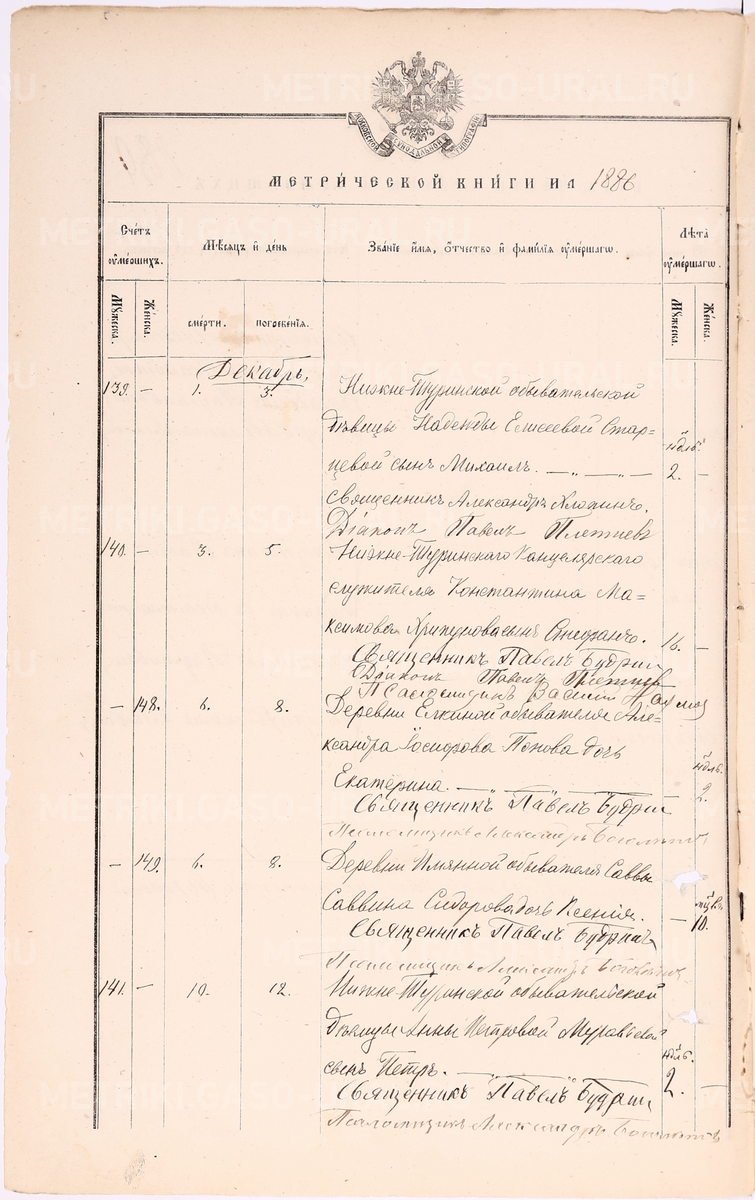 METRICS.GASO-URAL.RU
МОСКОВСКОЙ СѴНОДАЛЬНОЙ ТИПОГРАФІИ
МЕТРИ́ЧЕСКОЙ КНИ́ГИ НА 1886
Счетъ ѹмершихъ.
Мѣсяцъ и день
Званіе имя, отчество и фамилія ѹмершагѡ.
Лѣта ѹмершагѡ.
Мужеска.
Женска.
смерти.
погребенія.
Мужеска.
Женска.
Декабрь,
139. — 1. 3. Нижне-Туринской обывательской
дѣвицы Надежды Елисеевой Стар=
ндль.
цевой сынъ Михаилъ. — „ — „ — 2. —
Священникъ Александръ Хлопинъ.
Діаконъ Павелъ Плетневъ
140. — 3. 5. Нижне-Туринскаго Канцелярскаго
служителя Константина Ма=
ксимова Хрипунова сынъ Стефанъ. 16. —
Священникъ Павелъ Будрин
Діаконъ Павелъ Плетневъ
Псаломщикъ Василій
— 148. 6. 8. Деревни Елкиной обывателя Але=
ксандра Іосифова Попова дочь
ндль.
Екатерина. — „ — „ — 2.
Священникъ Павелъ Будрин
Псаломщикъ Александръ
— 149. 6. 8. Деревни Имянной обывателя Саввы
мцъ.
Саввина Сидорова дочь Ксенія. — 10.
Священникъ Павелъ Будринъ
Псаломщикъ Александръ
141. — 10. 12. Нижне-Туринской обывательской
дѣвицы Анны Петровой Муравьевой
ндль.
сынъ Петръ. — „ — „ 2. —
Священникъ Павелъ Будрин
Псаломщикъ Александръ